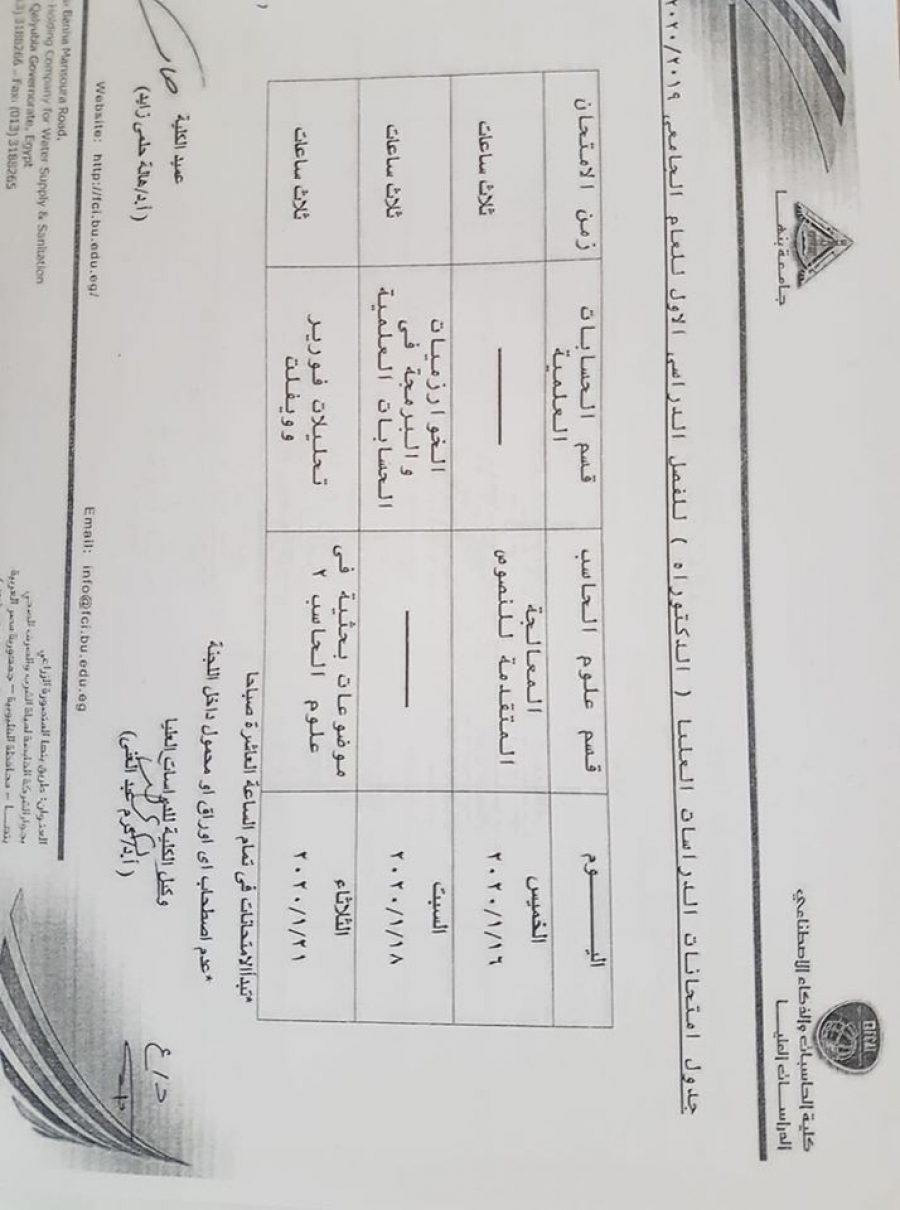 جامعة بنهــا
كلية الحاسبات والذكاء الاصطناعي
الدراســات العليــا
جدول امتحانات الدراسات العليا ( الدكتوراه ) للفصل الدراسى الاول للعام الجامعى ٢٠٢٠/٢٠١٩
اليـــوم
قسم علوم الحاسب
قسم الحسابات
العلمية
زمن الامتحان
الخميس
٢٠٢٠/١/١٦
المعالجة
المتقدمة للنصوص
ثلاث ساعات
السبت
٢٠٢٠/١/١٨
الخوارزميات
والبرمجة فى
الحسابات العلمية
ثلاث ساعات
الثلاثاء
٢٠٢٠/١/٢١
موضوعات بحثية فى
علوم الحاسب ٢
تحليلات فورير
وويفلت
ثلاث ساعات
*تبدأ الامتحانات فى تمام الساعة العاشرة صباحا
*عدم اصطحاب اى اوراق او محمول داخل اللجنة
وكيل الكلية للدراسات العليا
(أ.د/كرم عبد الغنى)
عميد الكلية
(أ.د/هالة حلمى زايد)
Website: http://fci.bu.edu.eg/
Email: info@fci.bu.edu.eg
Banha Mansoura Road,
Holding Company for Water Supply & Sanitation
Qalyubia Governorate, Egypt
3188266 – Fax: (013) 3188265
العنوان: طريق بنها المنصورة الزراعي
بجوار الشركة القابضة لمياه الشرب والصرف الصحي
بنهــا – محافظة القليوبية – جمهورية مصر العربية